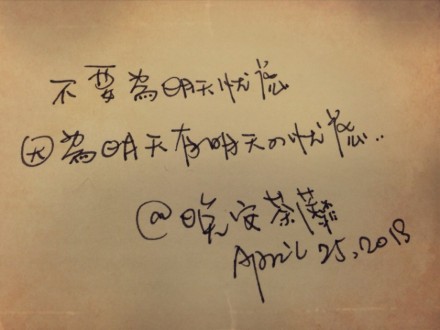 不要為明天忧慮
因為明天有明天の忧慮..
@晚安荼蘼
April 25, 2013